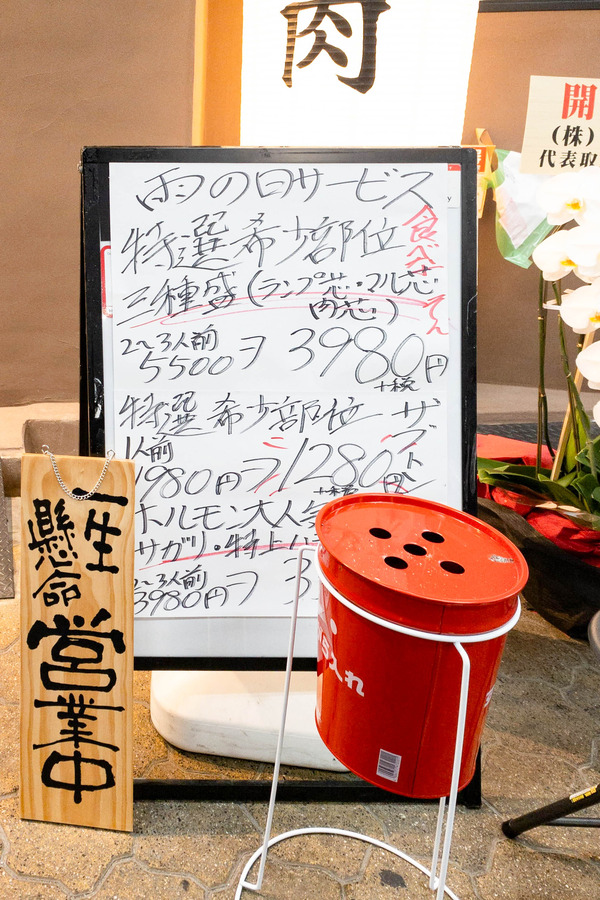 肉
開
(株)
代表取
雨の日サービス
特選希少部位
食べ
三種盛(ランプ芯・マル芯
肉芯)
2~3人前
5500ヲ 3980円
+税
特選希少部位ーザブトン
1人前
1980円ヲ1280円
+税
ホルモン大人
サガリ・特上
2~3人前
3980円ヲ 3
一生
懸命
営業中
入れ